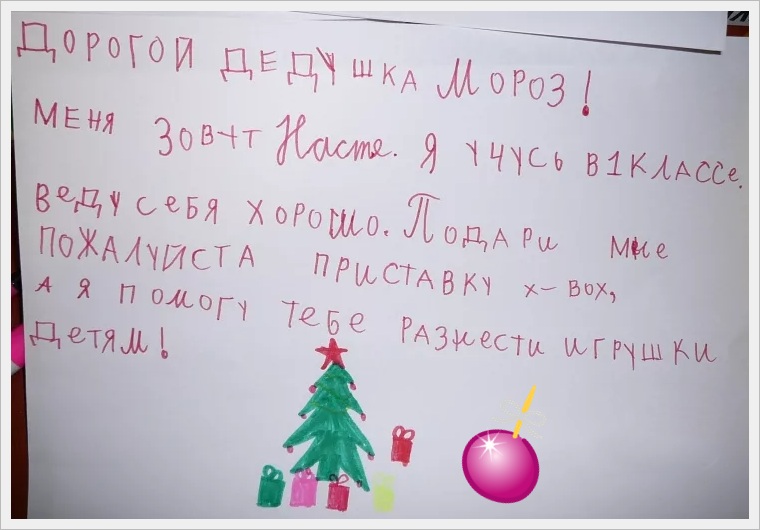 ДОРОГОЙ ДЕДУШКА МОРОЗ!
МЕНЯ ЗОВУТ Настя. Я УЧУСЬ В 1 КЛАССЕ.
ВЕДУ СЕБЯ ХОРОШО. ПОДАРИ МНЕ
ПОЖАЛУЙСТА ПРИСТАВКУ X-BOX,
А Я ПОМОГУ ТЕБЕ РАЗНЕСТИ ИГРУШКИ
ДЕТЯМ!